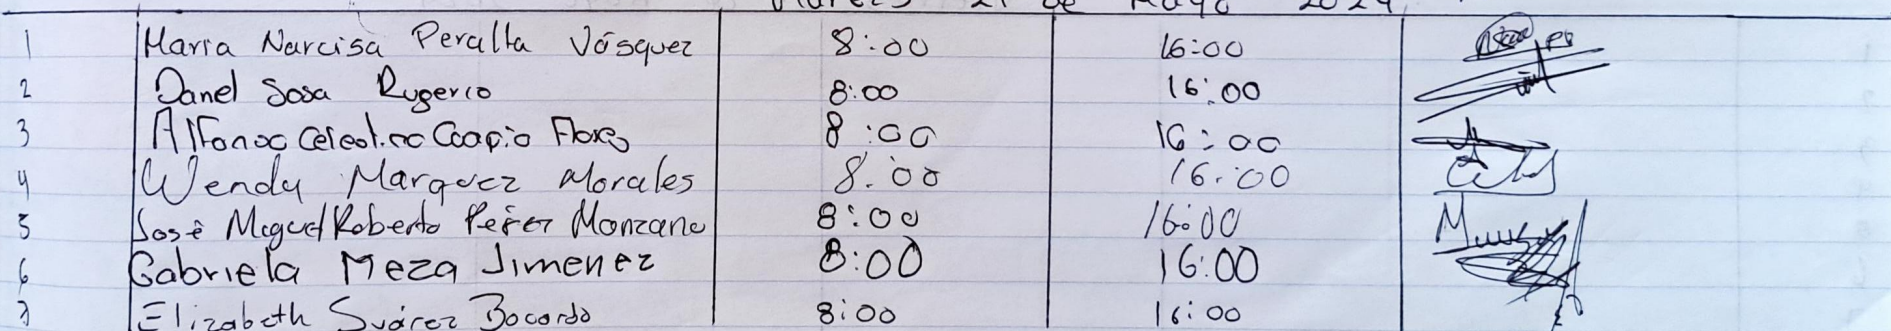 Martes 21 de Mayo 2024
1 Maria Narcisa Peralta Vásquez 8:00 16:00
2 Danel Sosa Rugerio 8:00 16:00
3 Alfonso Celestino Coapio Flores 8:00 16:00
4 Wendy Marquez Morales 8:00 16:00
5 José Miguel Roberto Peréz Manzano 8:00 16:00
6 Gabriela Meza Jimenez 8:00 16:00
7 Elizabeth Suárez Bocardo 8:00 16:00